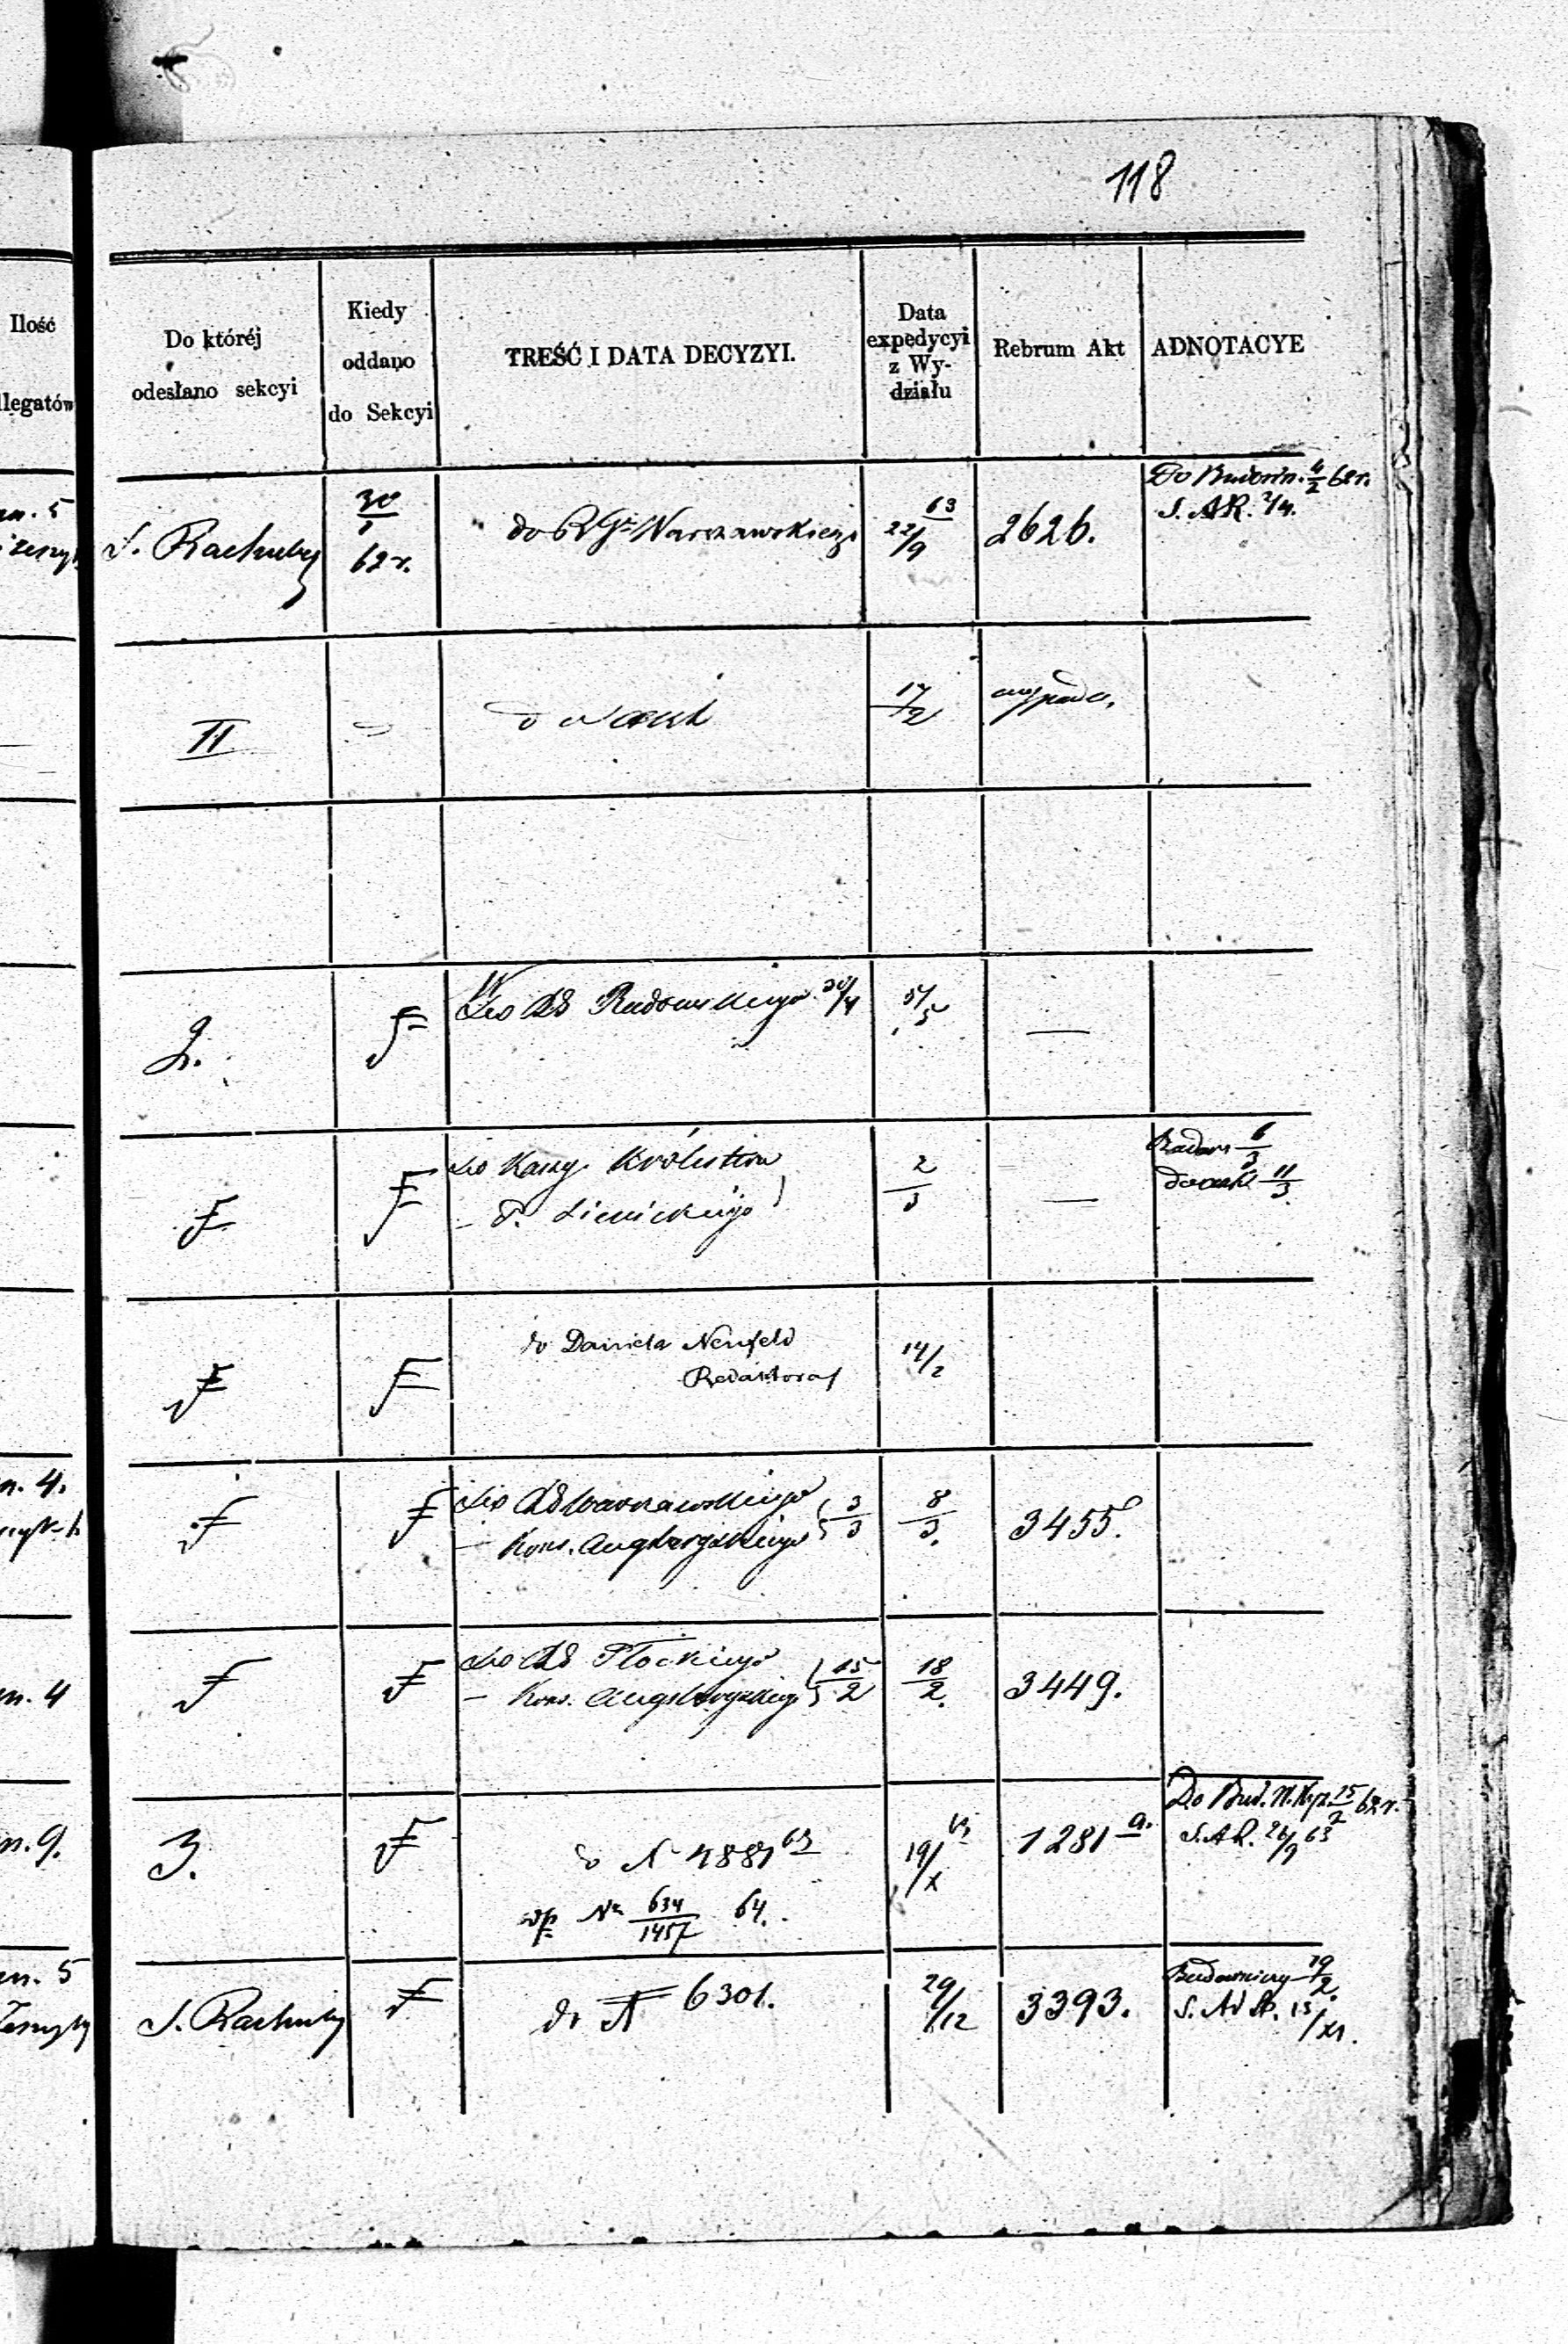 118
Ilość
llegatów
Do któréj
odesłano sekcyi
Kiedy
oddano
do Sekcyi
TREŚĆ I DATA DECYZYI.
Data
expedycyi
z Wy-
działu
Rebrum Akt
ADNOTACYE
S. Rachuby
30/1
62 r.
do R Gu Warszawskiego
63
22/9
2626.
Do Budown. 4/2 62 r.
S. AR. 2/4.
II
17/2
2.
F
Do Radomskiego 30/4
5/5
—
F
F
Do Kassy Królestwa
— P. Lienickiego
2/3
—
Radom 6/3
11/3
F
F
do Daniela Neufeld
Redaktora
14/2
F
F
Do Warszawskiego
— Kons. Augsburgskiego
3/3
8/3.
3455.
F
F
Do Płockiego
— Kons. Augsburgskiego
15/2
18/2.
3449.
n. 4.
n. 4
n. 9.
3.
F
do N 4887 63
Nr 634/1457 64.
19/X
1281 a.
Do Bud. 15/2 62 r.
S. A R. 26/9 63
n. 5
S. Rachuby
F
do N 6301.
29/12
3393.
Budowniczy 19/2.
S. Ad R. 15/XI.